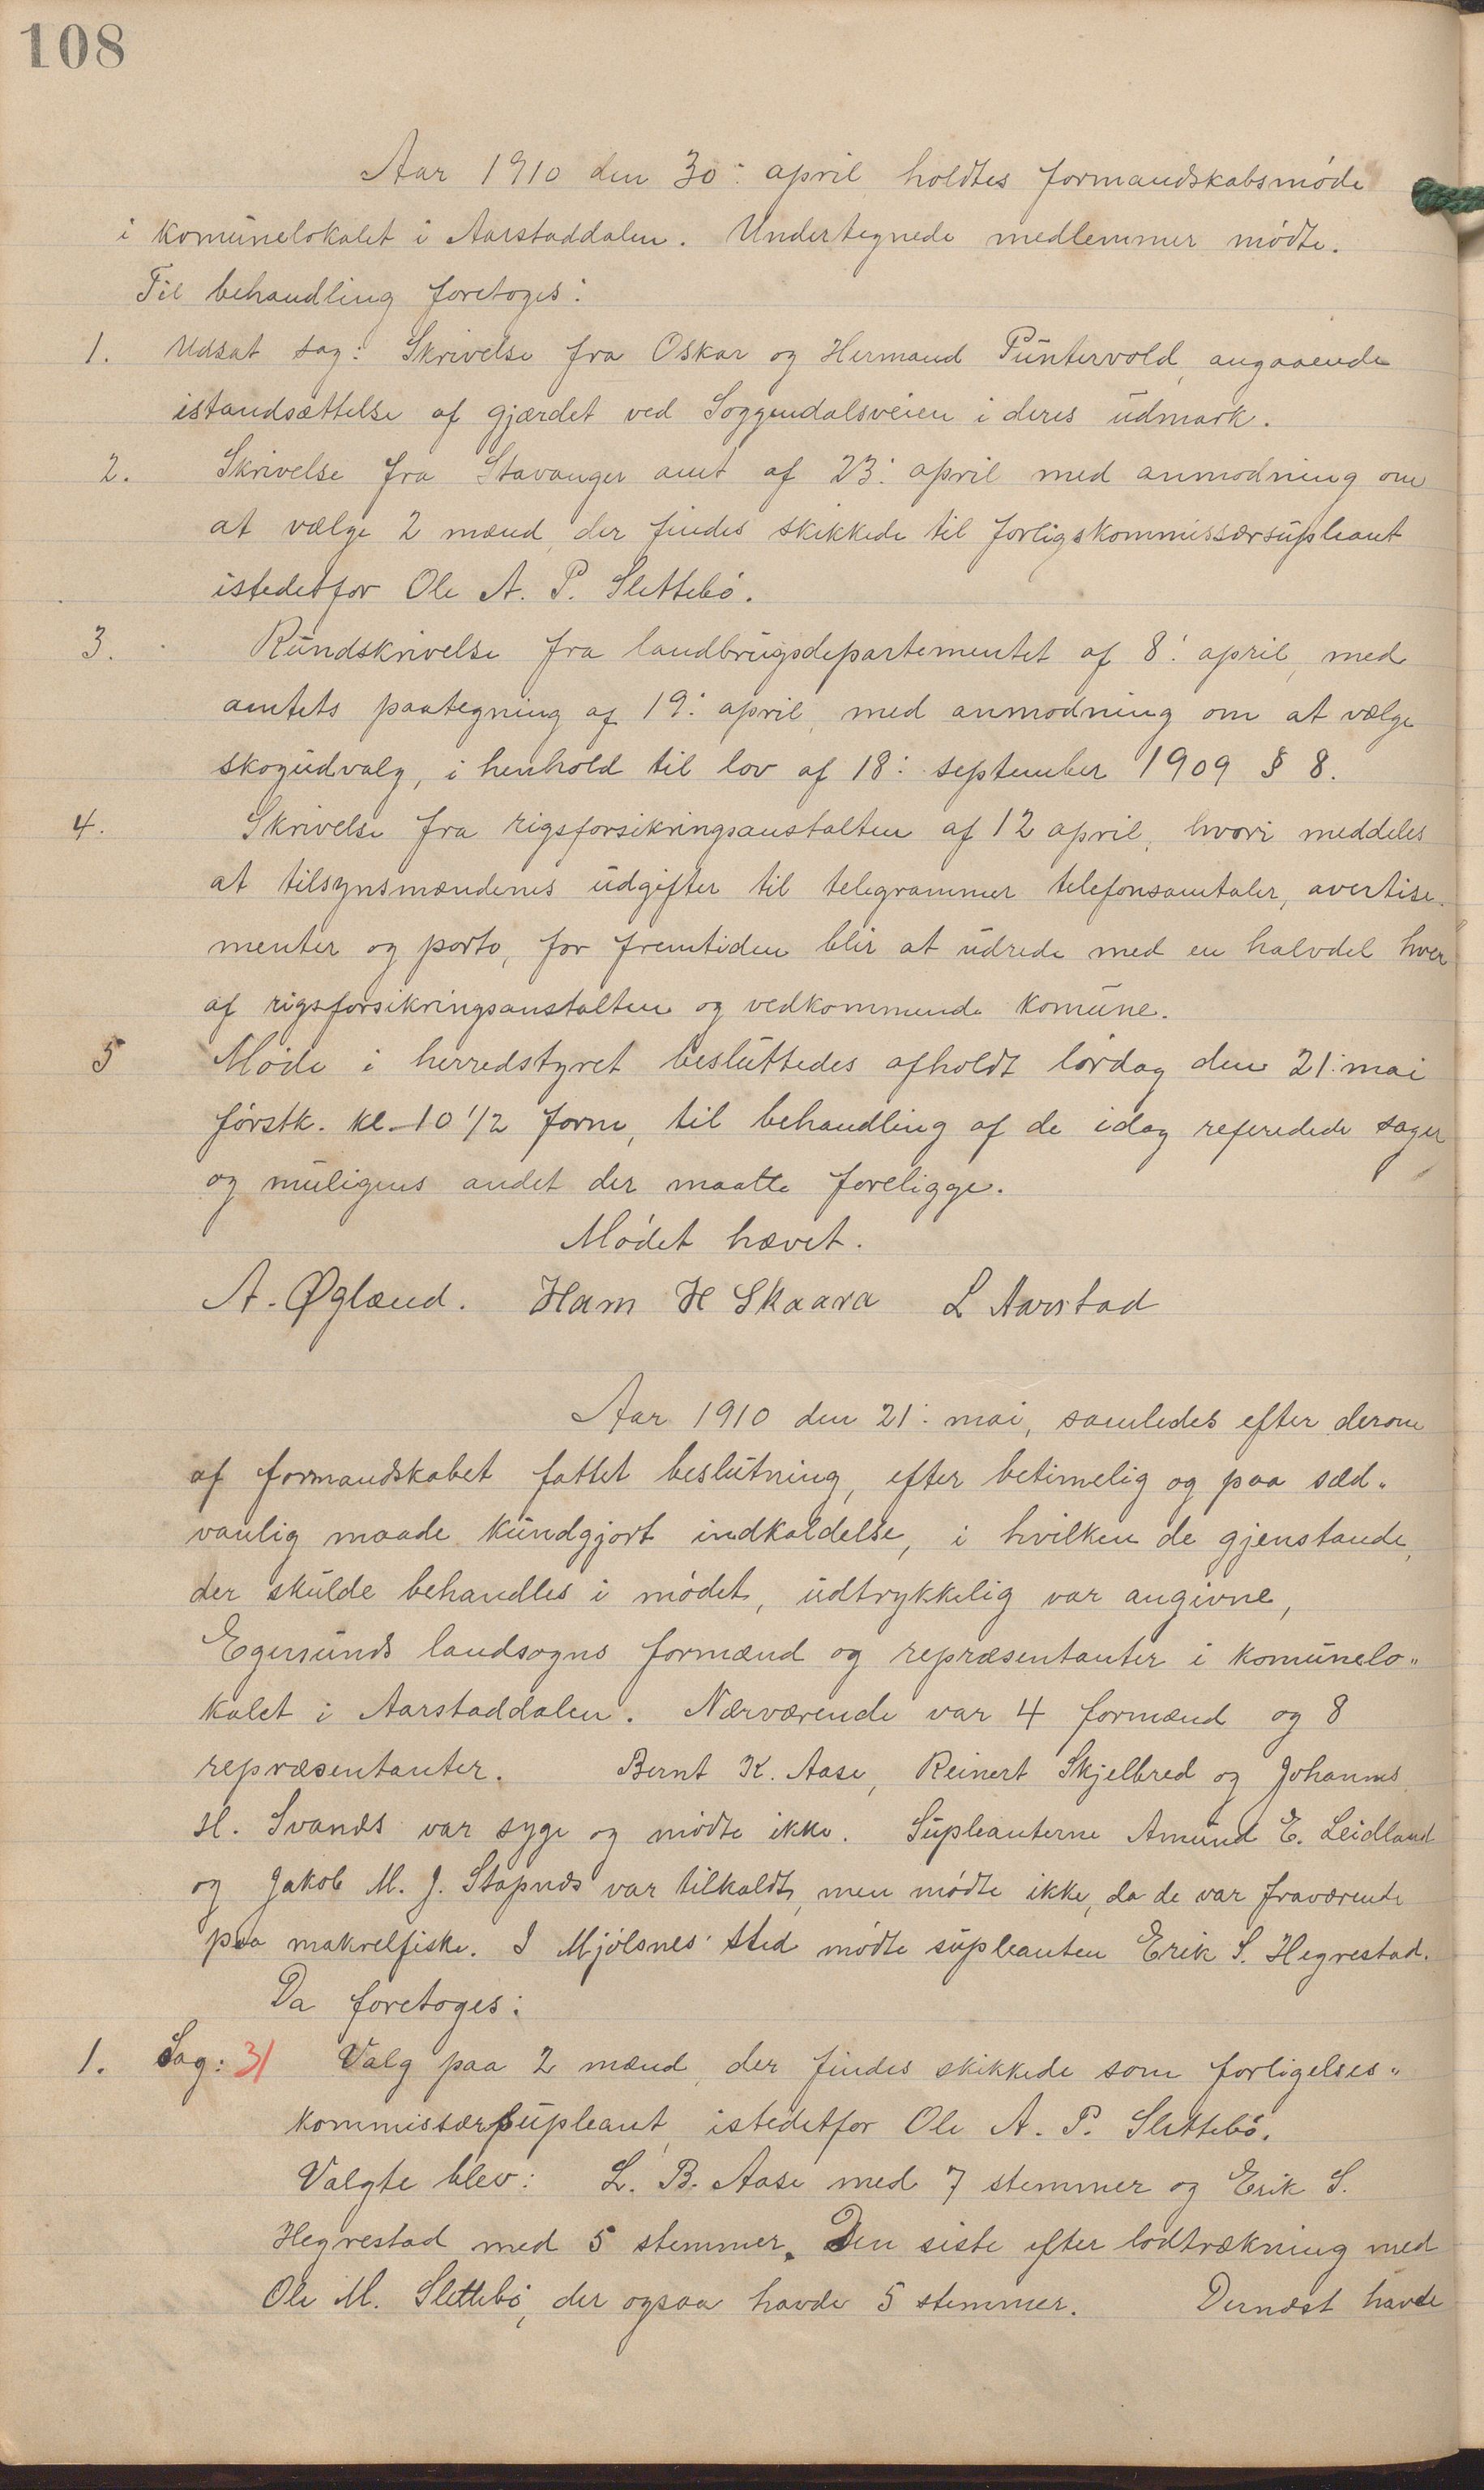 108
Aar 1910 den 30: april holdtes formandskabsmøde
i komunelokalet i Aarstaddalen. Undertegnede medlemmer mødte.
Til behandling foretoges:
1. Udsat sag: Skrivelse fra Oskar og Hermand Puntervold, angaaende
istandsættelse af gjærdet ved Soggendalsveien i deres udmark.
2. Skrivelse fra Stavanger amt af 23: april med anmodning om
at vælge 2 mænd, der findes skikkede til forligskommissærsupleant
istedetfor Ole A. P. Slettebø.
3. Rundskrivelse fra landbrugsdepartementet af 8: april, med
amtets paategning af 19: april, med anmodning om at vælge
skogudvalg, i henhold til lov af 18: september 1909 § 8.
4. Skrivelse fra rigsforsikringsanstalten af 12 april, hvori meddeles
at tilsynsmændenes udgifter til telegrammer telefonsamtaler, avertise-
menter og porto, for fremtiden blir at udrede med en halvdel hver
af rigsforsikringsanstalten og vedkommende komune.
5 Møde i herredstyret besluttedes afholdt lørdag den 21: mai
førstk. kl. 10 1/2 form, til behandling af de idag referedede sager
og muligens andet der maatte foreligge.
Mødet hævet.
A. Øglænd. Ham H Skaara L Aarstad
Aar 1910 den 21: mai, samledes efter derom
af formandskabet fattet beslutning, efter betimelig og paa sæd„
vanlig maade kundgjort indkaldelse, i hvilken de gjenstande,
der skulde behandles i mødet, udtrykkelig var angivne,
Egersunds landsogns formænd og repræsentanter i komunelo„
kalet i Aarstaddalen. Nærværende var 4 formænd og 8
repræsentanter. Bernt K. Aase, Reinert Skjelbred og Johannes
H. Svanes var syge og mødte ikke. Supleanterne Amund E. Leidland
og Jakob M. J. Stapnes var tilkaldt, men mødte ikke, da de var fraværende
paa makrelfiske. I Mjølsnes' sted mødte supleanten Erik S. Hegrestad.
Da foretoges:
1. Sag: 31 Valg paa 2 mænd, der findes skikkede som forligelses„
kommissærsupleant, istedetfor Ole A. P. Slettebø.
Valgte blev: L. B. Aase med 7 stemmer og Erik S.
Hegrestad med 5 stemmer. Den siste efter lodtrækning med
Ole M. Slettebø, der ogsaa havde 5 stemmer. Dernæst havde